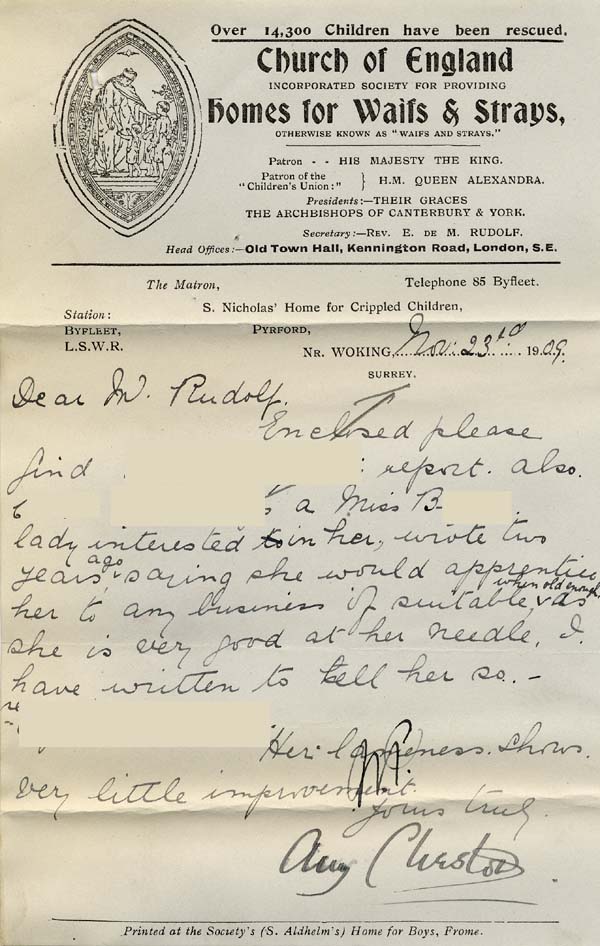 Over 14,300 Children have been rescued.
Church of England
INCORPORATED SOCIETY FOR PROVIDING
Homes for Waifs & Strays,
OTHERWISE KNOWN AS "WAIFS AND STRAYS."
Patron - - HIS MAJESTY THE KING.
Patron of the "Children's Union:" } H.M. QUEEN ALEXANDRA.
Presidents:—THEIR GRACES
THE ARCHBISHOPS OF CANTERBURY & YORK.
Secretary:—REV. E. DE M. RUDOLF.
Head Offices:—Old Town Hall, Kennington Road, London, S.E.
The Matron, Telephone 85 Byfleet.
S. Nicholas' Home for Crippled Children,
Station:
BYFLEET, PYRFORD,
L.S.W.R. NR. WOKING, Nov: 23rd 1909.
SURREY.
Dear Mr. Rudolf.
Enclosed please
find : report. also.
a Miss B
lady interested in her, wrote two
years ago, saying she would apprentice
her to any business if suitable, when old enough. as
she is very good at her needle, I.
have written to tell her so. -
Her lameness. shows.
very little improvement.
Yours truly.
Amy Cheston
Printed at the Society's (S. Aldhelm's) Home for Boys, Frome.